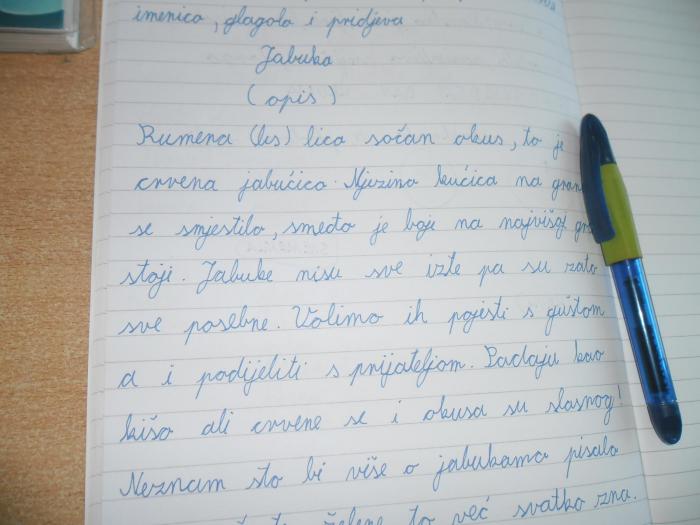 imenica, glagola i pridjeva
Jabuka
(opis)
Rumena (ks) lica sočan okus, to je
crvena jabučica. Njezina kućica na
se smjestila, smeđa je boje na najvišoj
stoji. Jabuke nisu sve izte pa su zato
sve posebne. Volimo ih pojesti s guštom
a i podijeliti s prijateljom. Padaju kao
kiša ali crvene se i okusa su slasnog!
Neznam sto bi više o jabukama pisala
to već svatko zna.